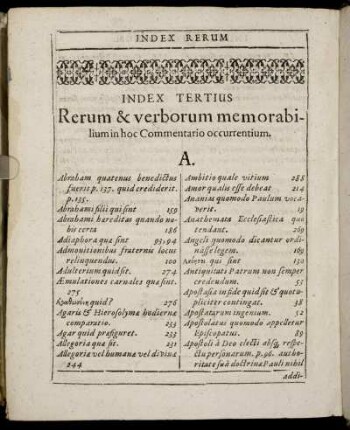 INDEX RERUM
INDEX TERTIUS
Rerum & verborum memorabi-
lium in hoc Commentario occurrentium.
A.
Abraham quatenus benedictus
fuerit p. 137. quid crediderit.
p. 135.
Abrahami filii qui sint 159
Abrahami hereditas quando no-
bis certa 186
Adiaphora quæ sint 95, 94
Admonitionibus fraternis locus
relinquendus. 100
Adulterium quid sit. 274
Æmulationes carnales quæ sint.
275
quid? 276
Agaris & Hierosolymæ hodiernæ
comparatio. 233
Agar quid præfiguret. 233
Allegoria quæ sit. 231
Allegoriæ vel humanæ vel divinæ
244
Ambitio quale vitium 288
Amor qualis esse debeat 214
Ananias quomodo Paulum voca-
verit. 19
Anathemata Ecclesiastica quo
tendant. 269
Angeli quomodo dicantur ordi-
nasse legem. 169
qui sint 152
Antiquitati Patrum non semper
credendum. 55
Apostasia in fide quid sit & quot-
pliciter contingat. 38
Apostatarum ingenium. 52
Apostolatus quomodo appelletur
Episcopatus. 89
Apostoli à Deo electi absq; respe-
ctu personarum. p. 96. autho-
ritate suâ doctrinæ Pauli nihil
addi-